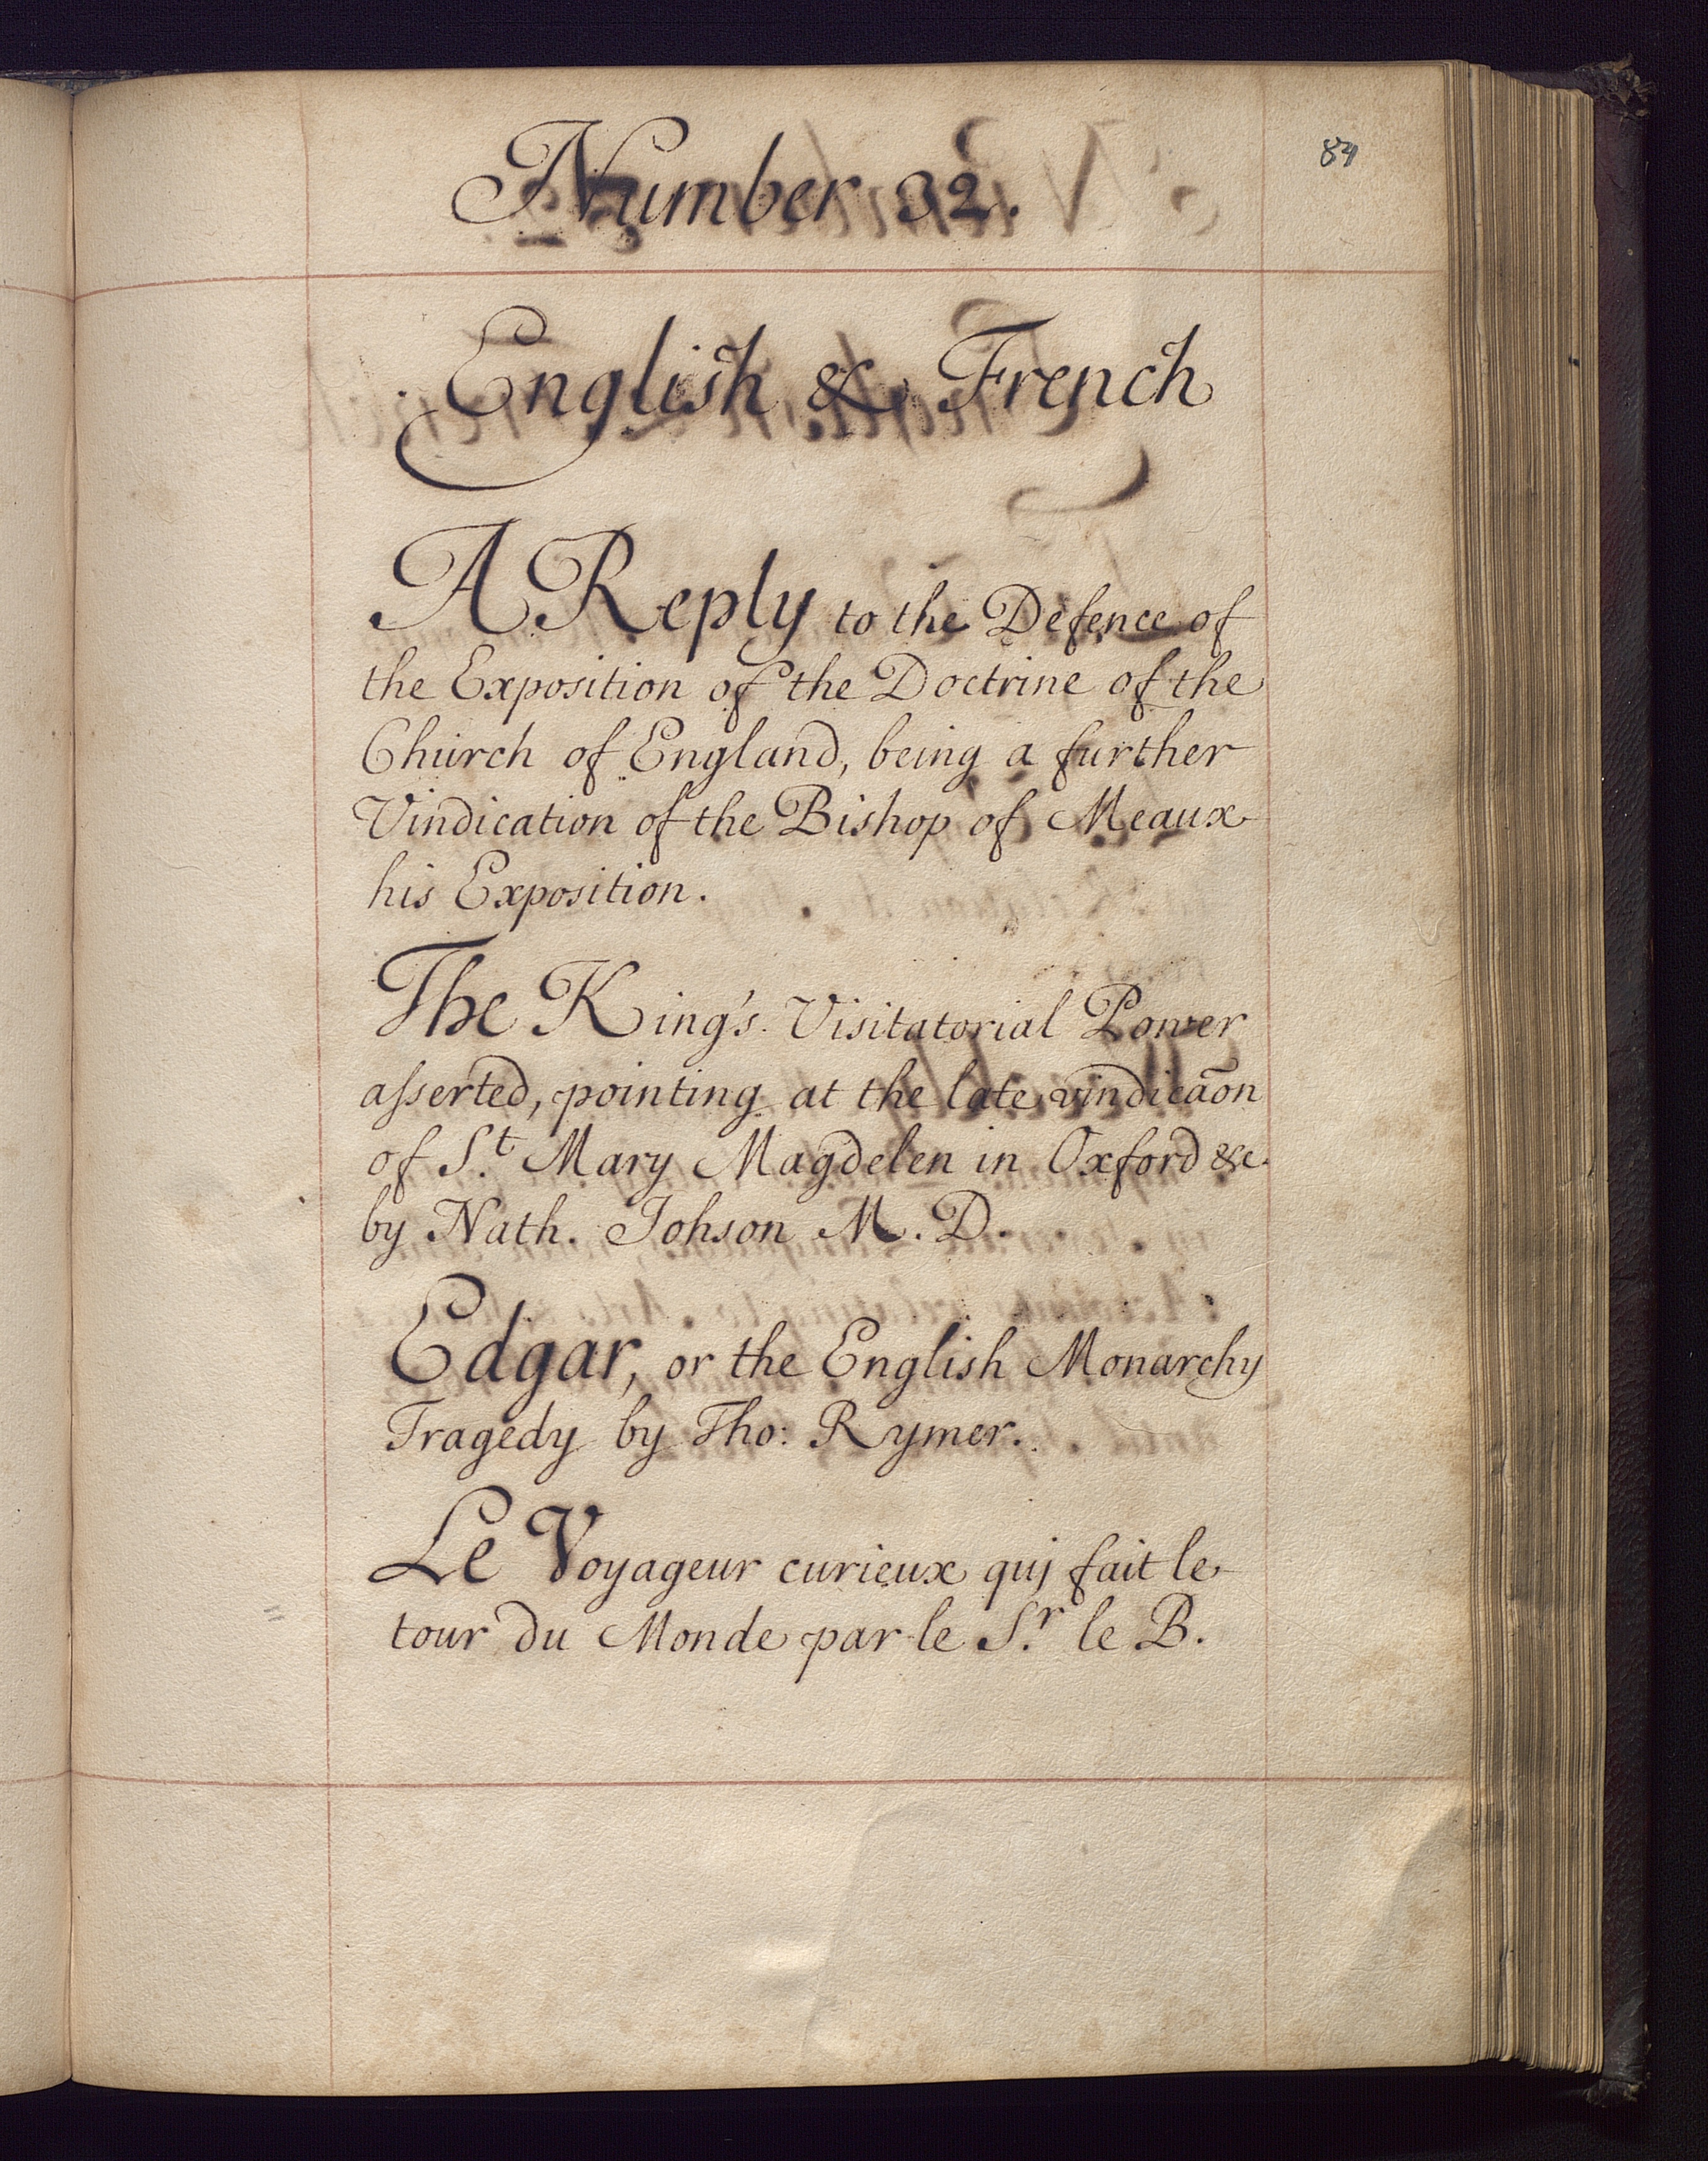 Number 32.
84
English & French
A Reply to the Defence of
the Exposition of the Doctrine of the
Church of England, being a further
Vindication of the Bishop of Meaux
his Exposition.
The King's Visitatorial Power
aſserted, pointing at the late vindicãon
of S.t Mary Magdelen in Oxford &c.
by Nath. Johson M. D.
Edgar, or the English Monarchy
Tragedy by Tho: Rymer.
Le Voyageur curieux quj fait le
tour du Monde par le S.r le B.